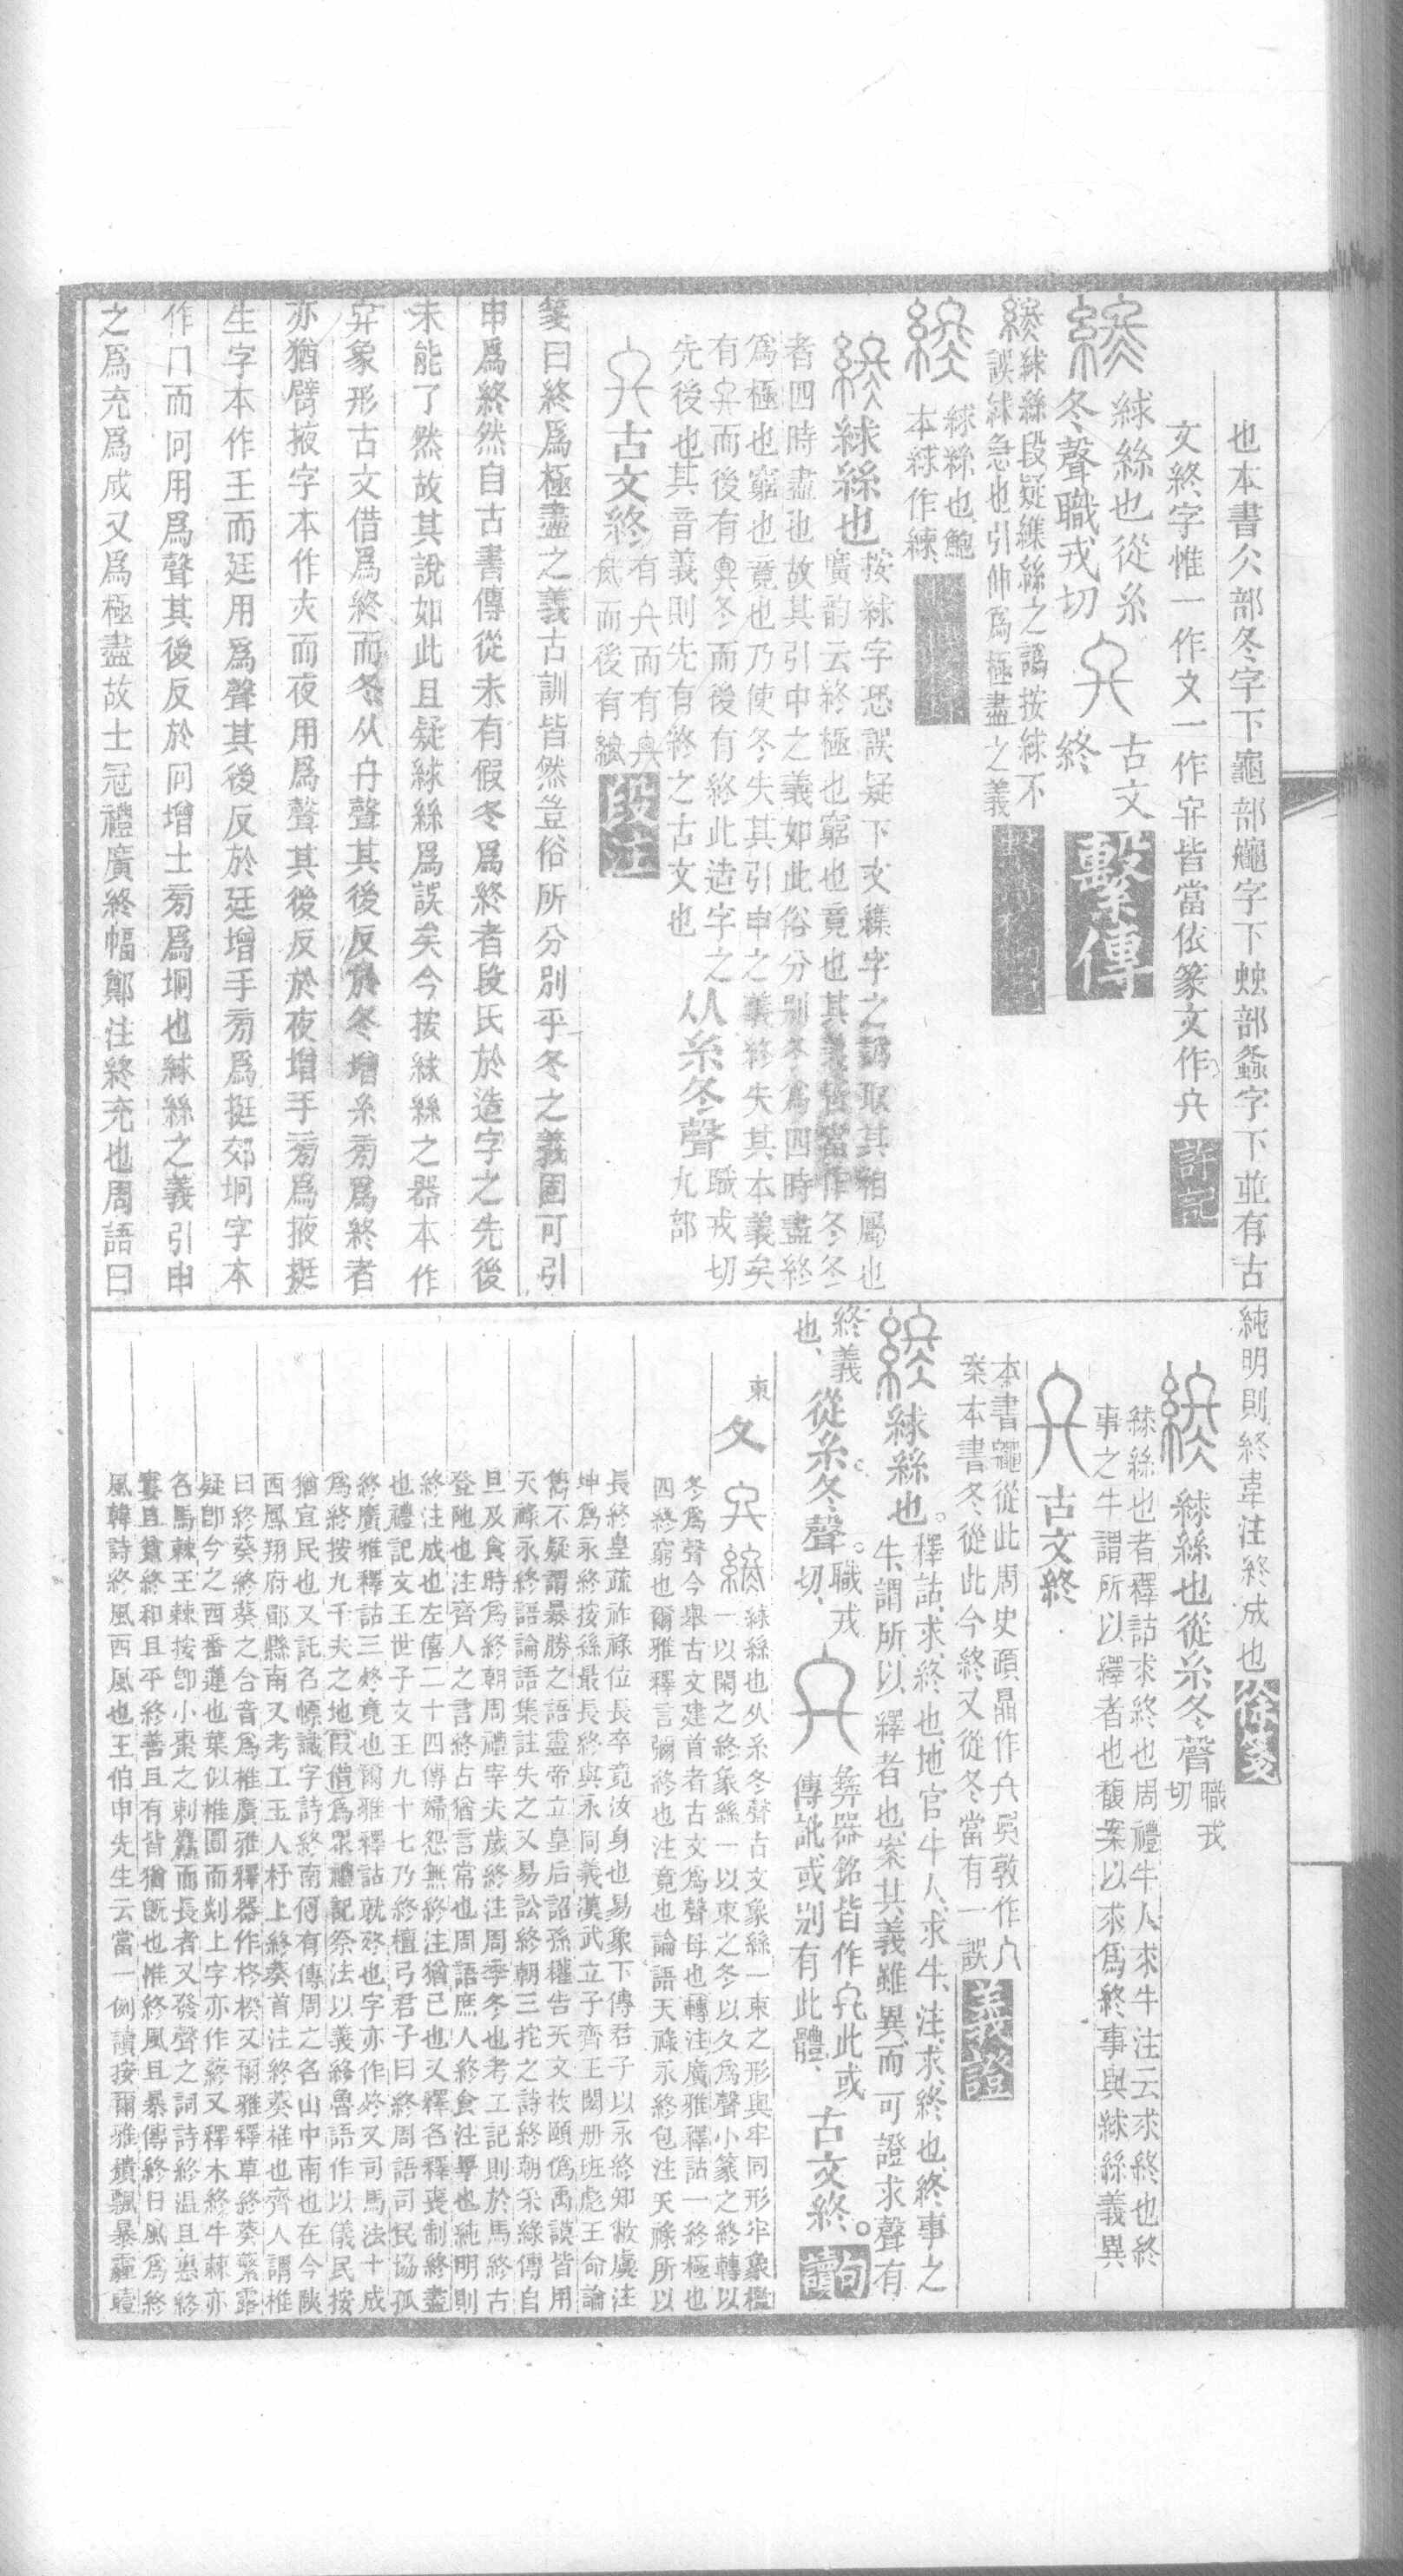 也本書仌部冬字下龜部䶱字下䖵部螽字下並有古
文終字惟一作文一作𠔾皆當依篆文作𠂂
許記
絿絲也從糸
冬聲職戎切
古文
終
繫傳
絿絲段疑繼絲之譌按絿不
誤絿急也引伸爲極盡之義
絿絲也鮑
本絿作練
絿絲也
按絿字恐誤疑下文繼字之譌取其相屬也
廣韵云終極也窮也竟也其義皆當作冬冬
者四時盡也故其引申之義如此俗分別冬爲四時盡終
爲極也窮也竟也乃使冬失其引申之義終失其本義矣
有𠔾而後有冬冬而後有終此造字之
先後也其音義則先有終之古文也
从糸冬聲
職戎切
九部
古文終
段注
箋曰終爲極盡之義古訓皆然豈俗所分別乎冬之義固可引
申爲終然自古書傳從未有假冬爲終者段氏於造字之先後
未能了然故其說如此且疑絿絲爲誤矣今按絿絲之器本作
象形古文借爲終而冬从聲其後反於冬增糸菊爲終者
亦猶臂掖字本作亦而夜用爲聲其後反於夜增手菊爲掖挺
生字本作壬而廷用爲聲其後反於廷增手菊爲挺郊坰字本
作冂而冋用爲聲其後反於冋增土菊爲坰也絿絲之義引申
之爲充爲成又爲極盡故士冠禮廣終幅鄭注終充也周語曰
純明則終韋注終成也
徐箋
絿絲也從糸冬聲
職戎
切
絿絲也者釋詁求終也周禮牛人求牛注云求終也終
事之牛謂所以繹者也馥案以求爲終事與絿絲義異
古文終
本書繩從此周史頙鼎作𠂂吳敦作
案本書冬從此今終又從冬當有一誤
義證
絿絲也。
釋詁、求、終也、地官、牛人、求牛、注、求、終也、終事之
牛、謂所以繹者也、案其義雖異、而可證求聲有
終義
也、
從糸冬聲。
職戎
切、
彝器銘皆作此或
傳訛、或別有此體、
古文終。
句讀
東
夂
絿絲也从糸冬聲古文象絲一束之形與牢同形牢象檻
一以閑之終象絲一以束之冬以久爲聲小篆之終轉以
冬爲聲今舉古文建首者古文爲聲母也轉注廣雅釋詁一終極也
四終窮也爾雅釋言彌終也注竟也論語天祿永終包注天祿所以
長終皇疏祚祿位長卒竟汝身也易象下傳君子以永終知敝虞注
坤爲永終按終最長終與永同義漢武立子齊王閎册班彪王命論
雋不疑謂暴勝之語靈帝立皇后詔孫權告天文枚頤僞禹謨皆用
天祿永終語論語集註失之又易訟終朝三扡之詩終朝采綠傳自
旦及食時爲終朝周禮宰夫歲終注周季冬也考工記則於馬終古
登阤也注齊人之言終古猶言常也周語庶人終食注畢也純明則
終注成也左僖二十四傳婦怨無終注猶已也又釋名釋喪制終盡
也禮記文王世子文王九十七乃終檀弓君子曰終周語司民協孤
終廣雅釋詁三終竟也爾雅釋詁就終也字亦作終又司馬法十成
爲終按九千夫之地叚借爲眾禮記祭法以義終魯語作以儀民按
猶宜民也又託名幖識字詩終南何有傳周之名山中南也在今陝
西鳳翔府郿縣南又考工玉人杼上終葵首注終葵椎也齊人謂椎
曰終葵終葵之合音爲椎廣雅釋器作柊楑又爾雅釋草終葵蘩露
疑卽今之西番蓮也葉似椎圓而剡上字亦作蔠又釋木終牛棘亦
名馬棘王棘按卽小棗之刺麤而長者又發聲之詞詩終溫且惠終
窶且貧終和且平終善且有皆猶旣也惟終風且暴傳終日風爲終
風韓詩終風西風也王伯申先生云當一例讀按爾雅